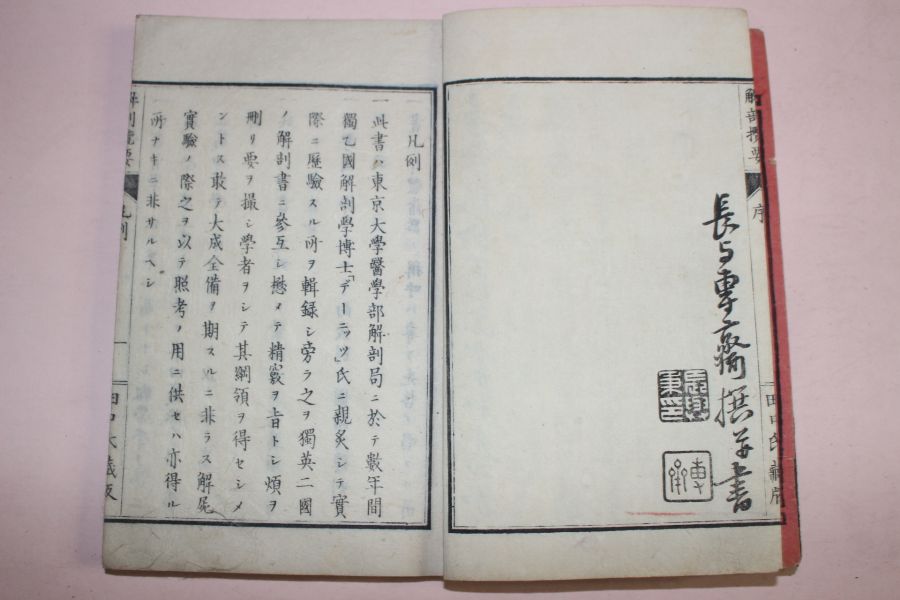 長与專齋撰并書
解剖攬要
序
田口氏藏版
凡例
一此書ハ東京大學醫學部解剖局ニ於テ數年間
獨乙國解剖學博士「デーニッツ」氏ニ親炙シテ實
際ニ歷驗スル所ヲ輯錄シ旁ラ之ヲ獨英二國
ノ解剖書ニ參互シ懋メテ精覈ヲ旨トシ煩ヲ
刪リ要ヲ撮シ學者ヲシテ其綱領ヲ得セシメ
ントス敢テ大成全備ヲ期スルニ非ラス解屍
實驗ノ際之ヲ以テ照考ノ用ニ供セハ亦得ル
所ナキニ非サルヘシ
解剖攬要
凡例
一
田口氏藏版